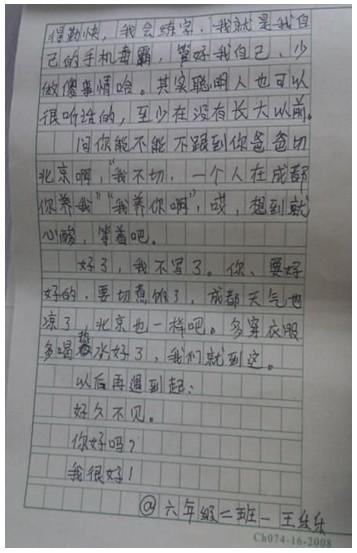 得勤快，我会练字，我就是我自
己的手机毒霸，管好我自己、少
做傻事情哈。其实聪明人也可以
很听话的，至少在没有长大以前。
问你能不能不跟到你爸爸切
北京啊，"我不切，一个人在成都
你养我""我养你啊"，哎，想到就
心酸，等着吧。
好了，我不写了。你、要好
好的，要切煮饭了，成都天气也
凉了，北京也一样吧。多穿衣服
多喝热水好了，我们就到这。
以后再遇到起：
好久不见。
你好吗？
我很好！
@六年级二班—王
Ch074-16-2008